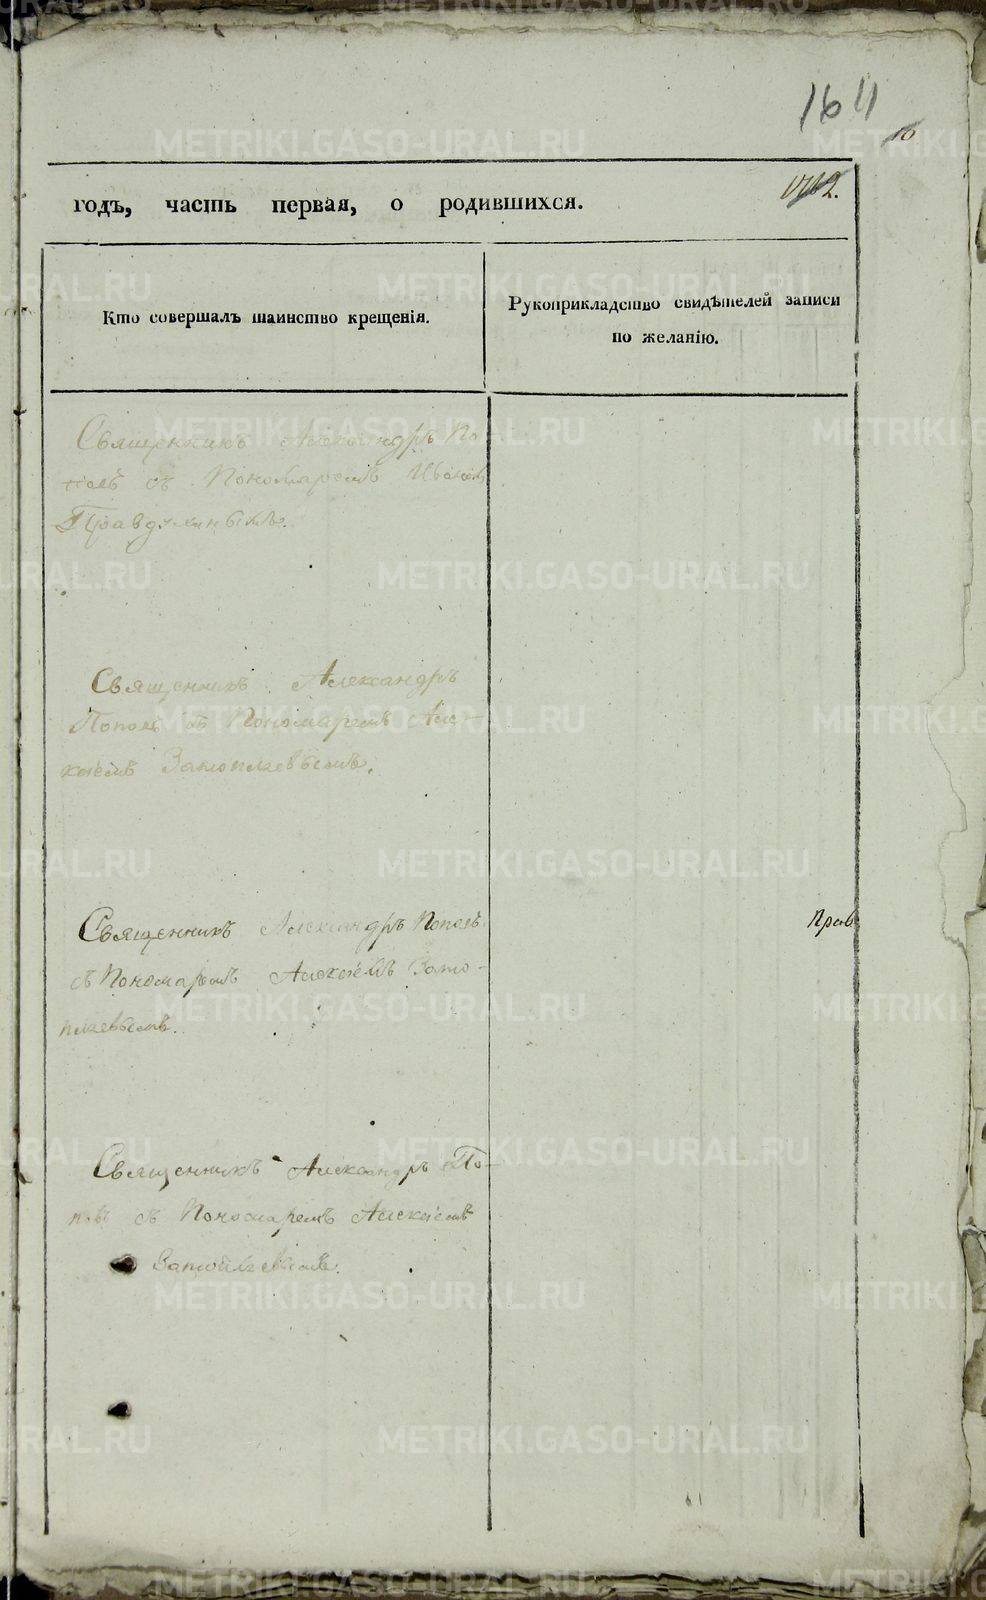 1611
10
1112.
годъ, часть первая, о родившихся.
Кто совершалъ таинство крещенія.
Рукоприкладство свидѣтелей записи
по желанію.
Священникъ Александръ По
повъ съ Пономаремъ Иваномъ
Правдухиныхъ.
Священникъ Александръ
Поповъ съ Пономаремъ Але-
ксѣемъ Затопляевымъ.
Священникъ Александръ Поповъ
съ Пономаремъ Алексѣемъ Зато-
пляевымъ.
Священникъ Александръ По-
повъ съ Пономаремъ Алексѣемъ
Затопляевымъ.
Прав
METRIKI.GASO-URAL.RU